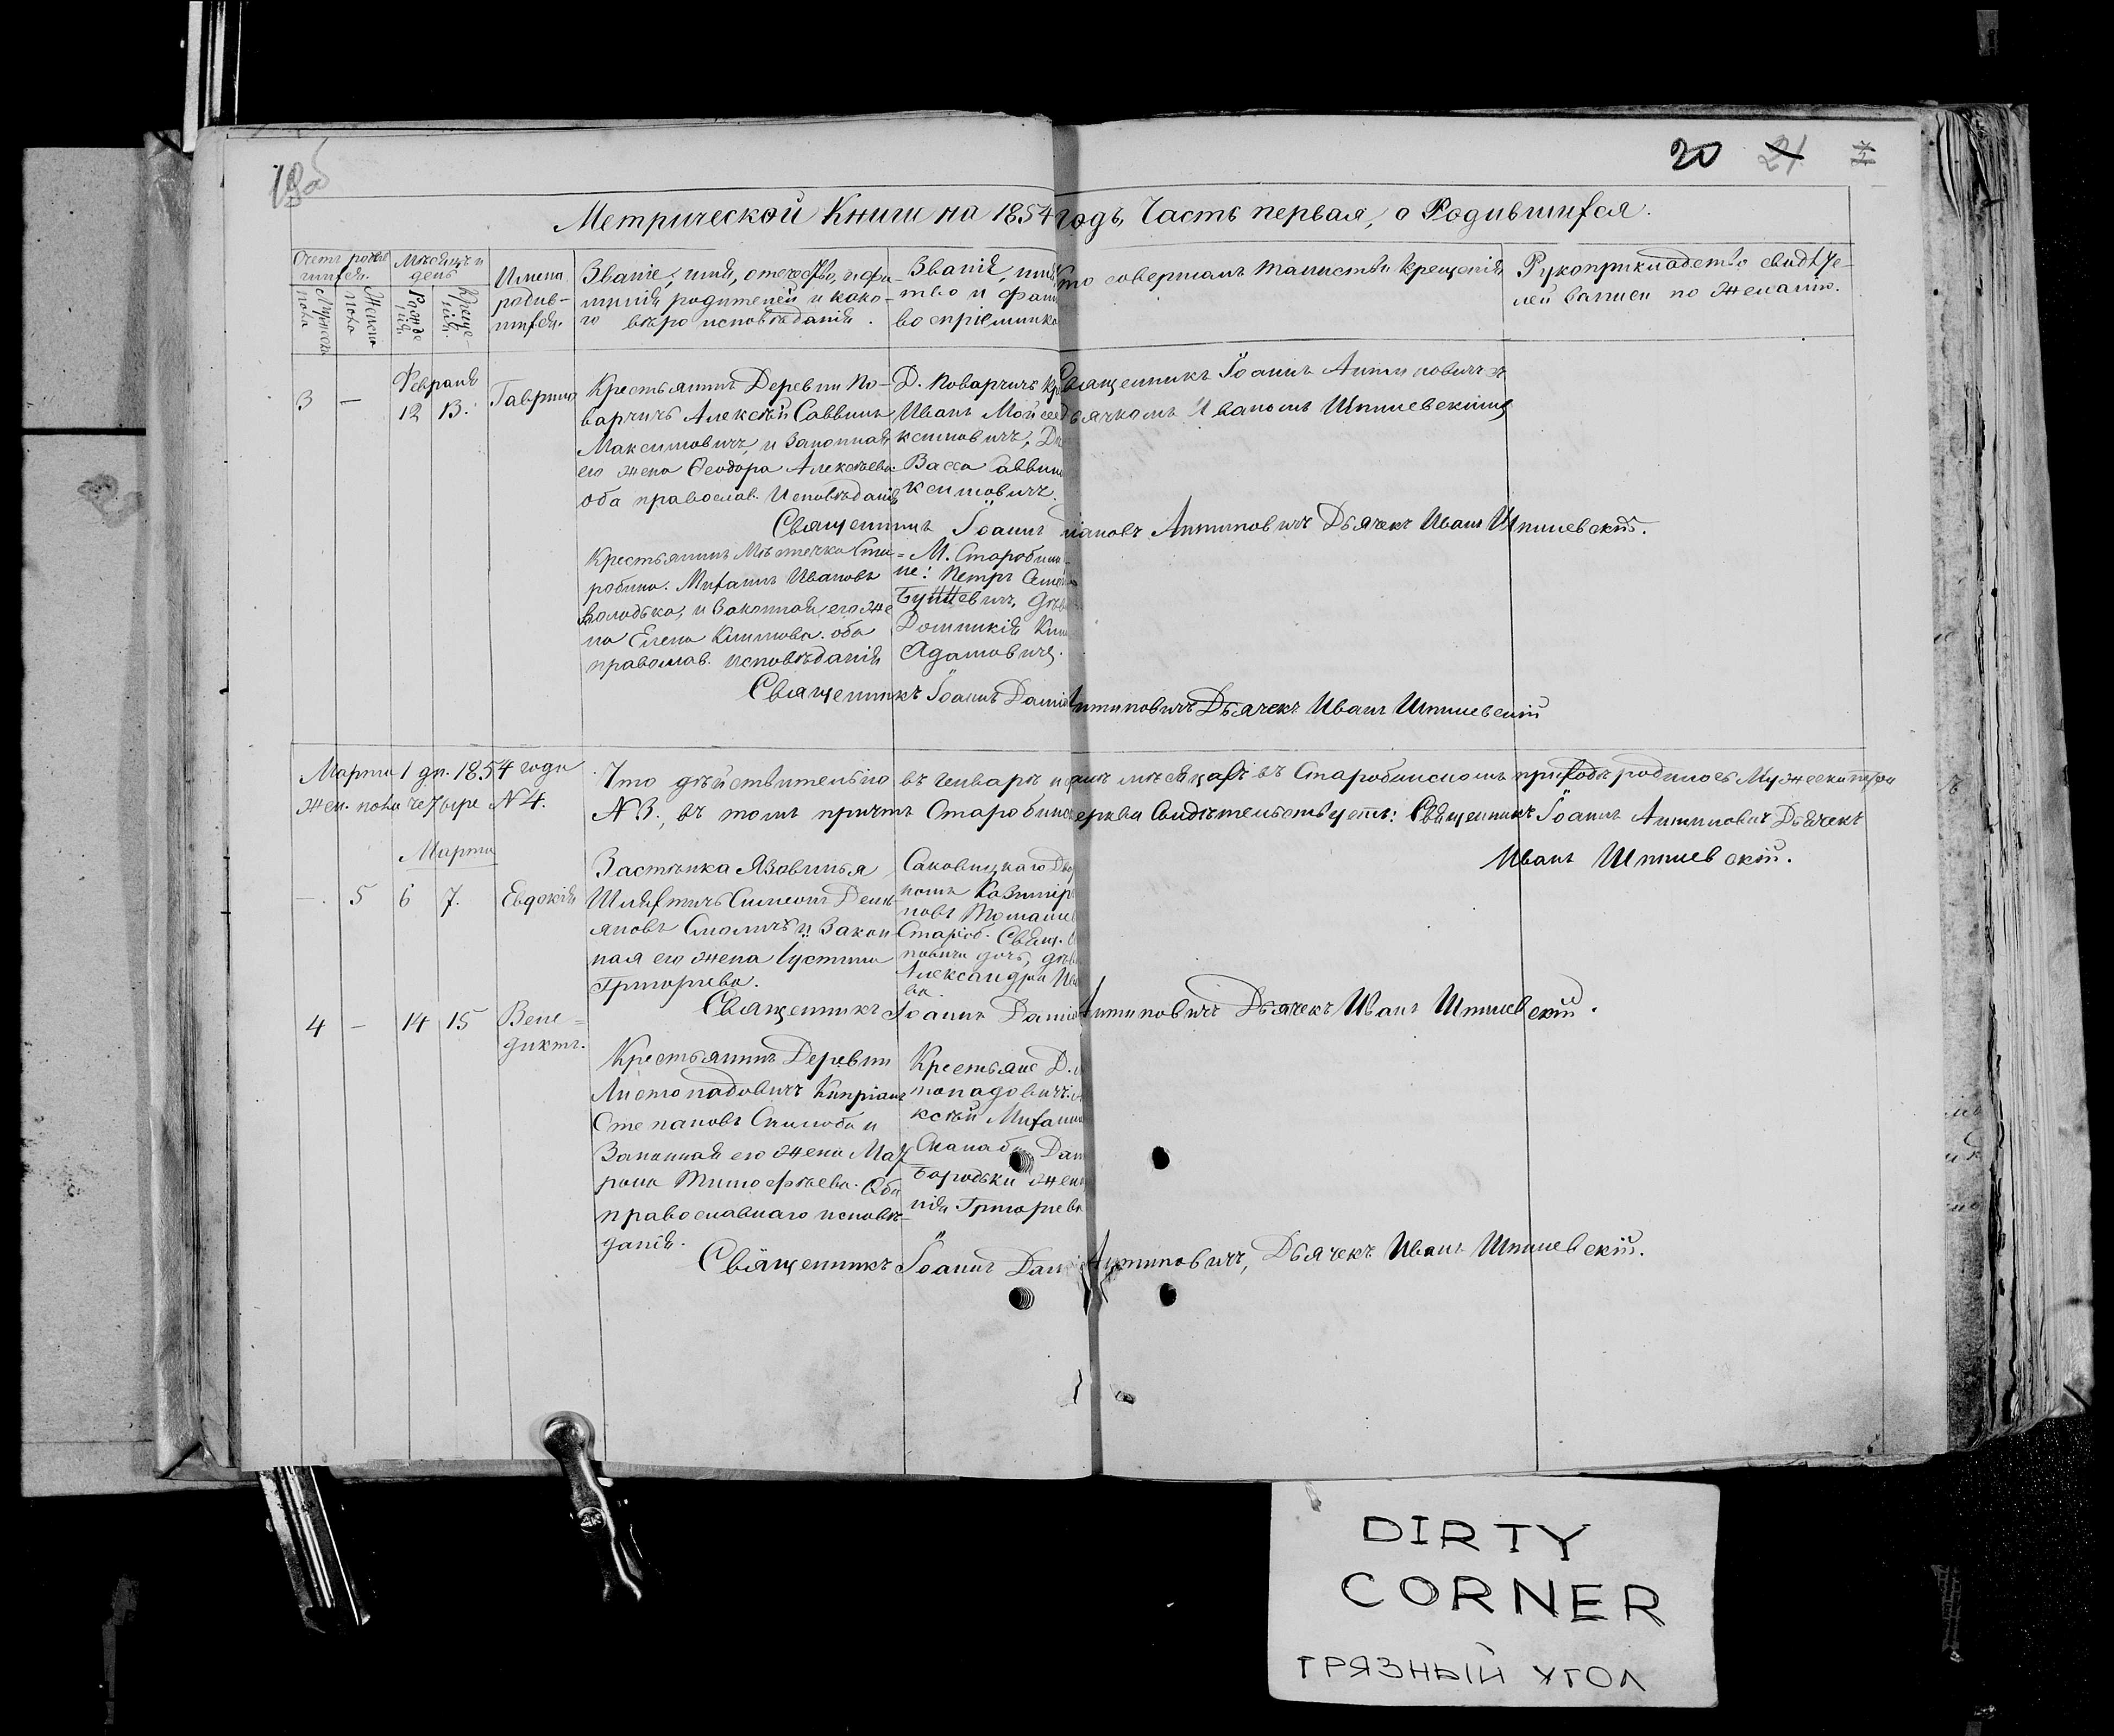 20 21
Метрической Книги на 1854 годъ, Часть первая, о Родившихся.
Счетъ родив-
шихся.
Мужеска
пола
Женска
пола
Мѣсяцъ и
день
Рожде
нія
Креще-
нія.
Имена
родив-
шихся.
Званіе, имя, отечество, и фа-
милія родителей и како-
го вѣроисповѣданія.
Званія, имя,
ство и фами
воспріемнико
то совершалъ таинство крещенія
Рукоприкладство свидѣте-
лей записи по желанію.
Февраля
3 — 12 13. Гавріилъ
Крестьянинъ Деревни По-
варчичъ Алексѣй Саввинъ
Максимовичъ, и Законная
его жена Ѳеодора Алексѣева
оба православ. Исповѣданія
Д. Поварчичъ кр
Иванъ Мойсе
ксимовичъ, Д
Васса Савви
ксимовичъ.
Священникъ Іоаннъ Антиповичъ съ
дьячкомъ Иваномъ Шпилевскимъ
Священникъ Іоаннъ Даніановъ Антиповичъ Дьячекъ Иванъ Шпилевскій.
Крестьянинъ Мѣстечка Ста-
робина. Михаилъ Ивановъ
Володько, и Законная его же
на Елена Климова. оба
православ. исповѣданія
М. Старобина
не: Петръ Семе
Бушевичъ, дѣв
Домникія Кли
Адамовичъ.
Священникъ Іоаннъ Даміа Антиповичъ Дьячекъ Иванъ Шпилевскій
Марта 1 дн. 1854 года
жен. пола четыре N 4.
Что дѣйствительно въ Генварѣ и мѣсяцахъ въ Старобинскомъ приходѣ родилось Мужеска три
N 3., въ томъ причтъ Старобинс церкви Свидѣтельствуетъ: Священникъ Іоаннъ Антиповичъ Дьячекъ
Иванъ Шпилевскій.
Марта
—. 5 6 7. Евдокія
Застѣнка Язовинья
Шляхтичъ Симеонъ Демь-
яновъ Смоличъ и Закон
ная его жена Іустина
Григорьева.
Саковицкаго Дво
номъ Казимір
новъ Томаше
Староб. Свящ.
повича дочь, дѣв
Александра Ива
ва.
Священникъ Іоаннъ Даміа Антиповичъ Дьячекъ Иванъ Шпилевскій.
4 — 14 15 Вене-
диктъ.
Крестьянинъ Деревни
Листопадовичъ Кипріанъ
Степановъ и
Законная его жена Мат
рона Тимофѣева. Оба
православнаго исповѣ-
данія.
Крестьяне Д.
топадовичъ.
ксѣй Михаил
Дам
Бородьки жен
нія Григорьева
Священникъ Іоаннъ Дам Антиповичъ, Дьячекъ Иванъ Шпилевскій.
DIRTY
CORNER
ГРЯЗНЫЙ УГОЛ